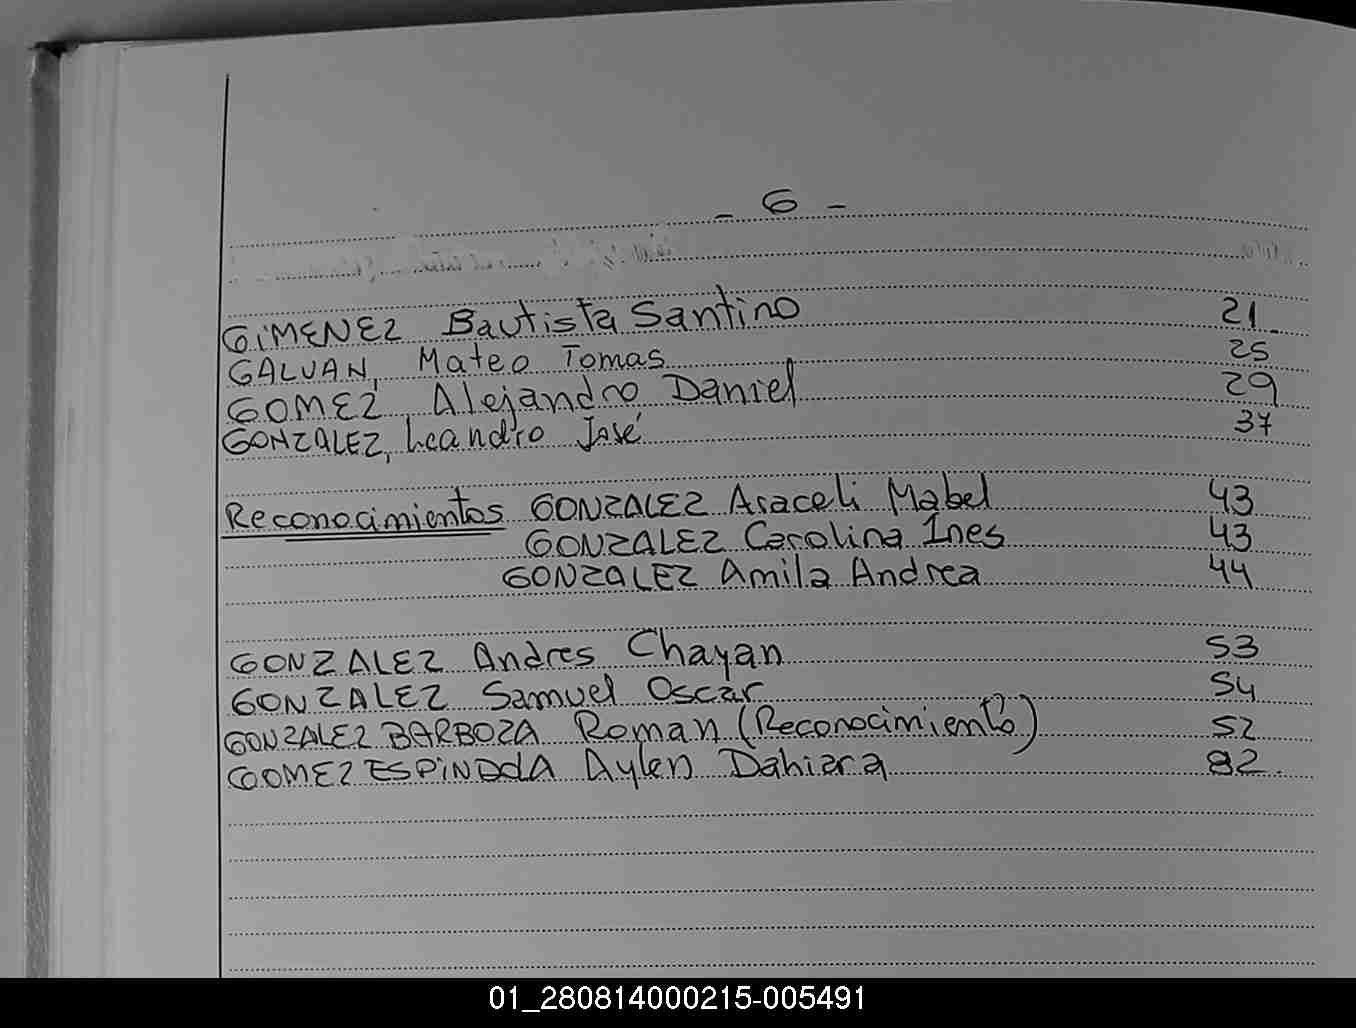 - G -
GIMENEZ Bautista Santino 21
GALVAN, Mateo Tomas 25
GOMEZ, Alejandro Daniel 29
GONZALEZ, Leandro José 37
Reconocimientos GONZALEZ Araceli Mabel 43
GONZALEZ Carolina Ines 43
GONZALEZ Amila Andrea 44
GONZALEZ Andres Chayan 53
GONZALEZ Samuel Oscar 54
GONZALEZ BARBOZA Roman (Reconocimiento) 52
GOMEZ ESPINDOLA Aylen Dahiara 82
01_280814000215-005491